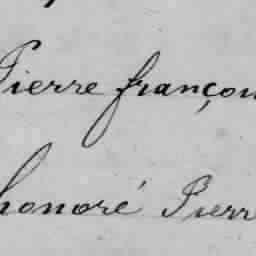 Pierre françoi
honoré Pierr